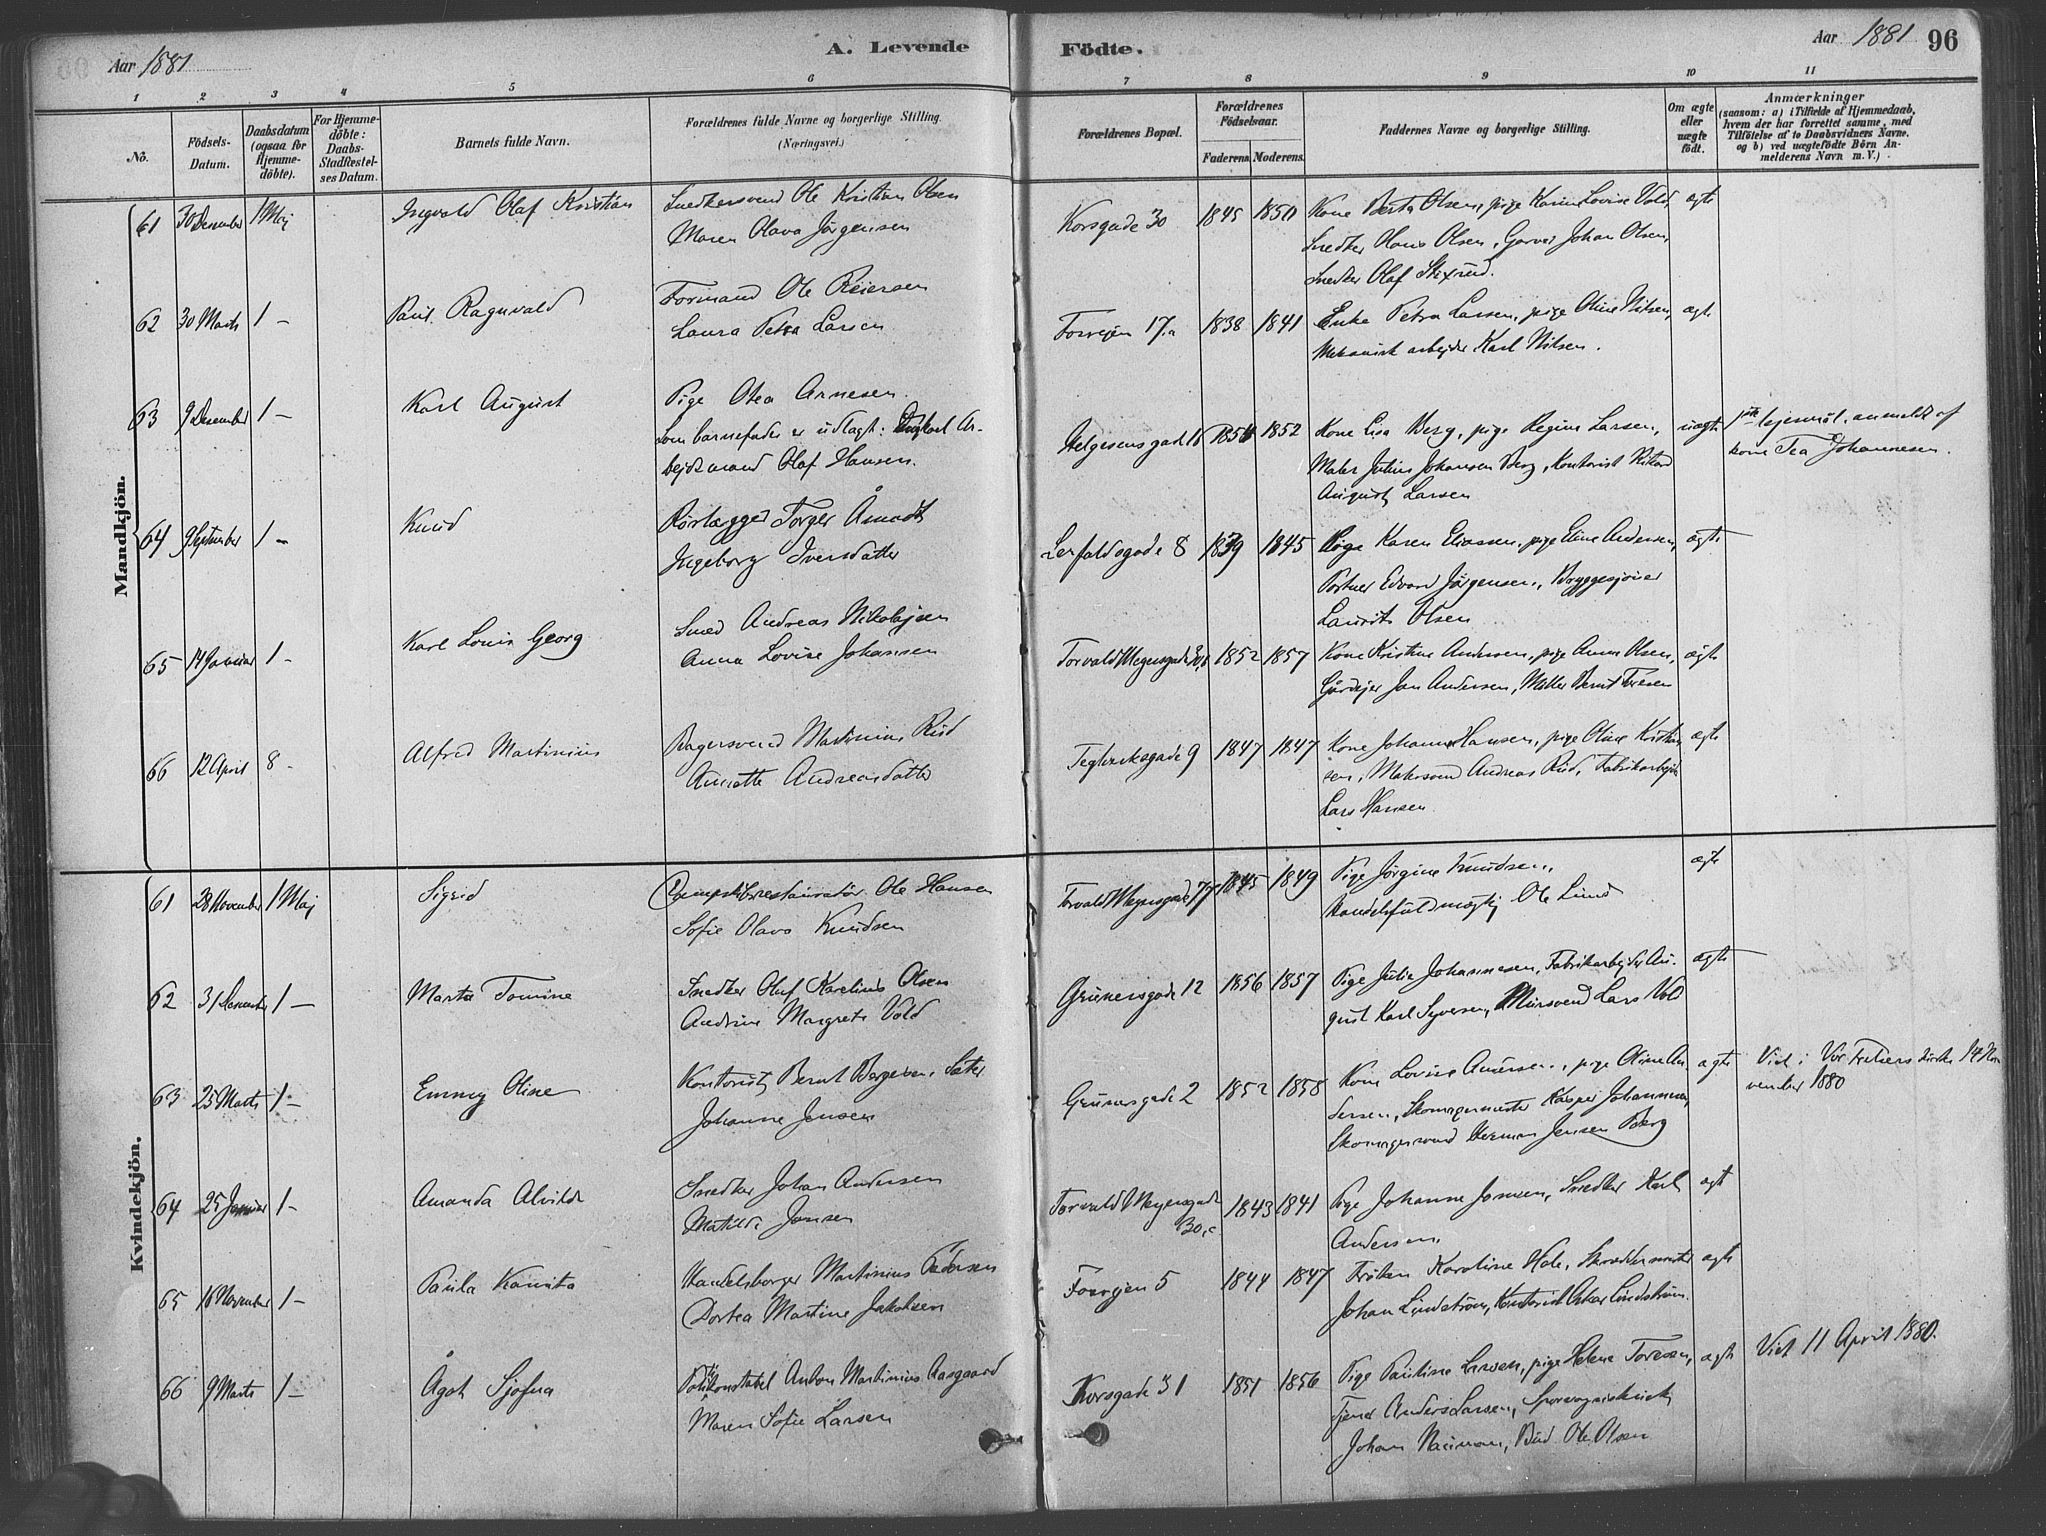 Aar 1881
A. Levende Födte.
Aar 1881 96
1 2 3 4 5 6 7 8 9 10 11
No.
Födsels-Datum.
Daabsdatum (ogsaa for Hjemme-döbte).
For Hjemme-döbte: Daabs-Stadfæstel-ses Datum.
Barnets fulde Navn.
Forældrenes fulde Navne og borgerlige Stilling. (Næringsvei.)
Forældrenes Bopæl.
Forældrenes Födselsaar.
Faderens. Moderens.
Faddernes Navne og borgerlige Stilling.
Om ægte eller uægte födt.
Anmærkninger
(saasom: a) i Tilfælde af Hjemmedaab, hvem der har forrettet samme, med Tilföielse af to Daabsvidners Navne. og b) ved uægtefödte Börn An-melderens Navn m. V.)
Mandkjön.
61 30 Desember 1 Maj Ingvald Olaf Kristian
Snedkersvend Ole Kristian Olsen
Maren Olava Jörgensen
Korsgade 30 1845 1850
Kone Berta Olsen, pige Karen Lovise Vold,
Snedker Hans Olsen, Garver Johan Olsen,
Snedker Olaf Skixrud.
ægte
62 30 Marts 1 - Paul Ragnvald
Formand Ole Reiersen
Laura Petra Larsen
Fossvejen 17.a 1838 1841
Enke Petra Larsen, pige Oline Nilsen,
Mekanisk arbejder Karl Nilsen.
ægte
63 9 Desember 1 - Karl August
Pige Otea Arnesen.
Som barnefader er udlagt: Ungkarl Ar-
bejdsmand Olaf Hansen.
Helgesensgade 16 1854 1852
Kone Lisa Berg, pige Regine Larsen,
Maler Julius Johansen Berg, Kontorist Rikard
August Larsen
uægte
1ste lejermål, anmeldt af
kone Tea Johannesen.
64 9 September 1 - Knud
Rörlægger Torger Åmodt
Ingeborg Iversdatter
Lerfaldsgade 8 1839 1845
Pige Karen Eliassen, pige Eline Andersen,
Portner Edvard Jörgensen, Bryggesjover
Laurits Olsen
ægte
65 14 Januar 1 - Karl Louis Georg
Smed Andreas Nikolajsen
Anna Lovise Johansen
Torvald Meyersgade 30, 1852 1857
Kone Kristine Andersen, pige Anna Olsen,
Gårdejer Jan Andersen, Möller Bernt Toresen
ægte
66 12 April 8 - Alfred Martinius
Bagersvend Martinius Rud
Annette Andreasdatter
Teglverksgade 9 1847 1847
Kone Johanne Hansen, pige Oline Kristian
sen, Malersvend Andreas Rud, Fabrikarbejder
Lars Hansen.
ægte
Kvindekjön.
61 28 November 1 Maj Sigrid
Ole Hansen
Sofie Olava Knudsen
Torvald Meyersgade 77 1845 1849
Pige Jörgine Knudsen,
Handelsfuldmægtig Ole Lund
ægte
62 31 Desember 1 - Marta Tomine
Snedker Olaf Karelius Olsen
Andrine Margrete Vold
Grünersgade 12 1856 1857
Pige Julie Johannesen, Fabrikarbejder Au-
gust Karl Syversen, Mursvend Lars Vold
ægte
63 25 Marts 1 - Emmy Oline
Kontorist Bernt Bergesen Sæter
Johanne Jensen
Grünersgade 2 1852 1858
Kone Lovise Andersen, pige Oline An
dersen, Skomagermester Kasper Johannesen,
Skomagersvend Herman Jensen Berg
ægte
Viet i Vor Frelsers kirke 14 No
vember 1880
64 25 Januar 1 - Amanda Alvilde
Snedker Johan Andersen
Matilde Jonsen
Torvald Meyersgade
30,c 1843 1841
Pige Johanne Jonsen, Snedker Karl
Andersen.
ægte
65 16 November 1 - Paula Kamita
Handelsborger Martinius Pedersen
Dortea Martine Jakobsen
Fossvejen 5 1844 1847
Fröken Karoline Hole, Skreddermester
Johan Lindström, Kontorist Oskar Lindström.
ægte
66 9 Marts 1 - Ågot Sjofna
Politikonstabel Anton Martinius Aasgaard
Maren Sofie Larsen
Korsgade 31 1851 1856
Pige Pauline Larsen, pige Helene Toresen,
Tjener Anders Larsen, Sporvogns
Johan Nauman, Bud Ole Olsen
ægte
Viet 11 April 1880.